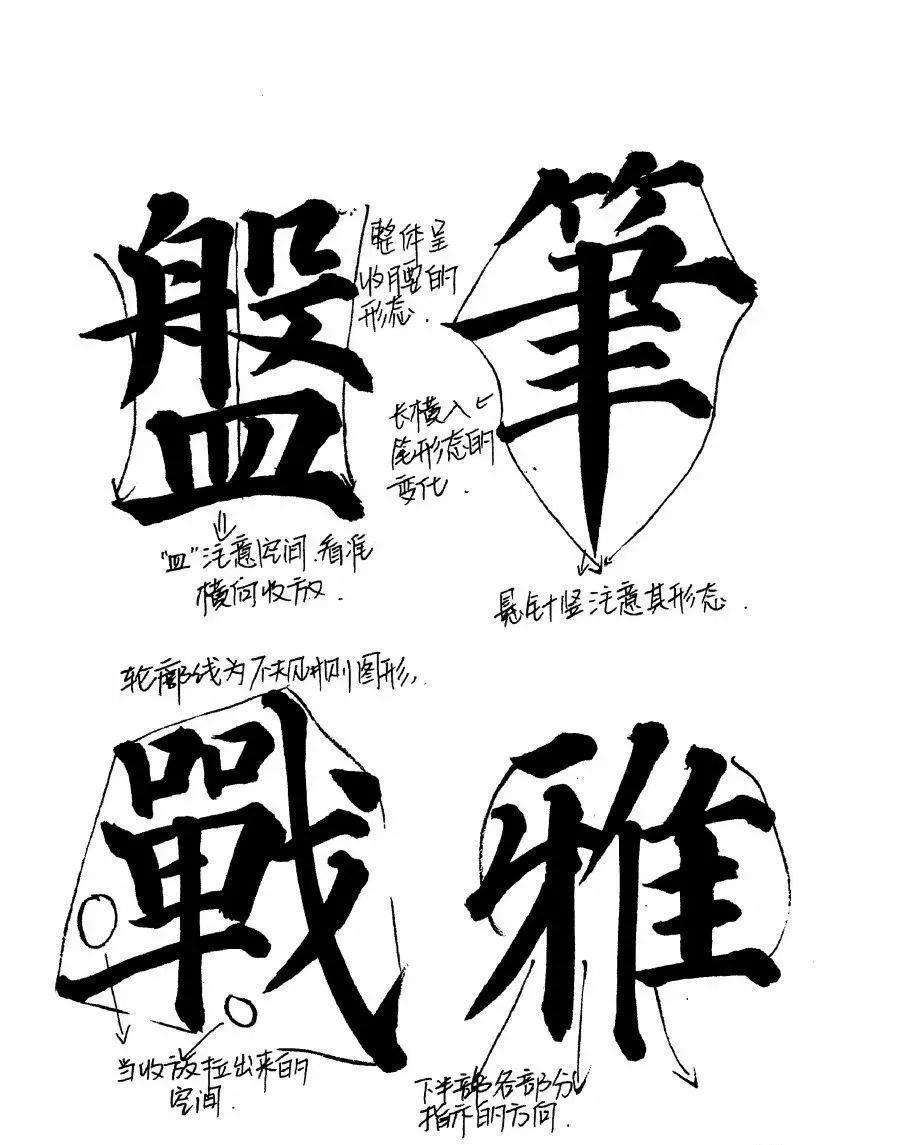 盤
整体呈
收腰的
形态.
筆
长横入
笔形态的
变化.
"皿"注意空间.看准
横向收放.
悬针竖注意其形态.
轮廓线为不规则图形,
戰
当收放拉出来的
空间.
雅
下半部各部分
指示的方向.